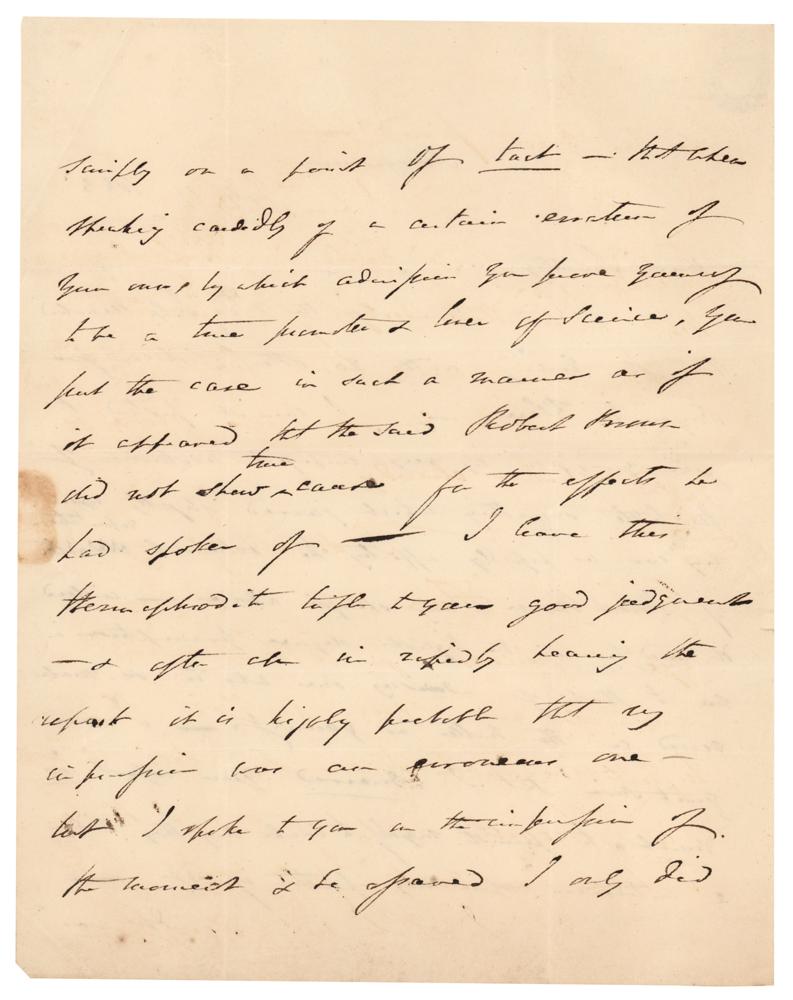 simply on a point of tact — that when
speaking candidly of a certain erratum of
your own, by which admission you prove yourself
to be a true promoter & lover of Science, you
put the case in such a manner as if
it appeared that the said Robert Brown
did not show true cause for the effects he
had spoken of — I leave this
Hermaphrodite trifle to your good judgment
— & after all in rapidly hearing the
report it is highly probable that my
impression was an erroneous one —
but I spoke to you on the impression of
the moment & be assured I only did